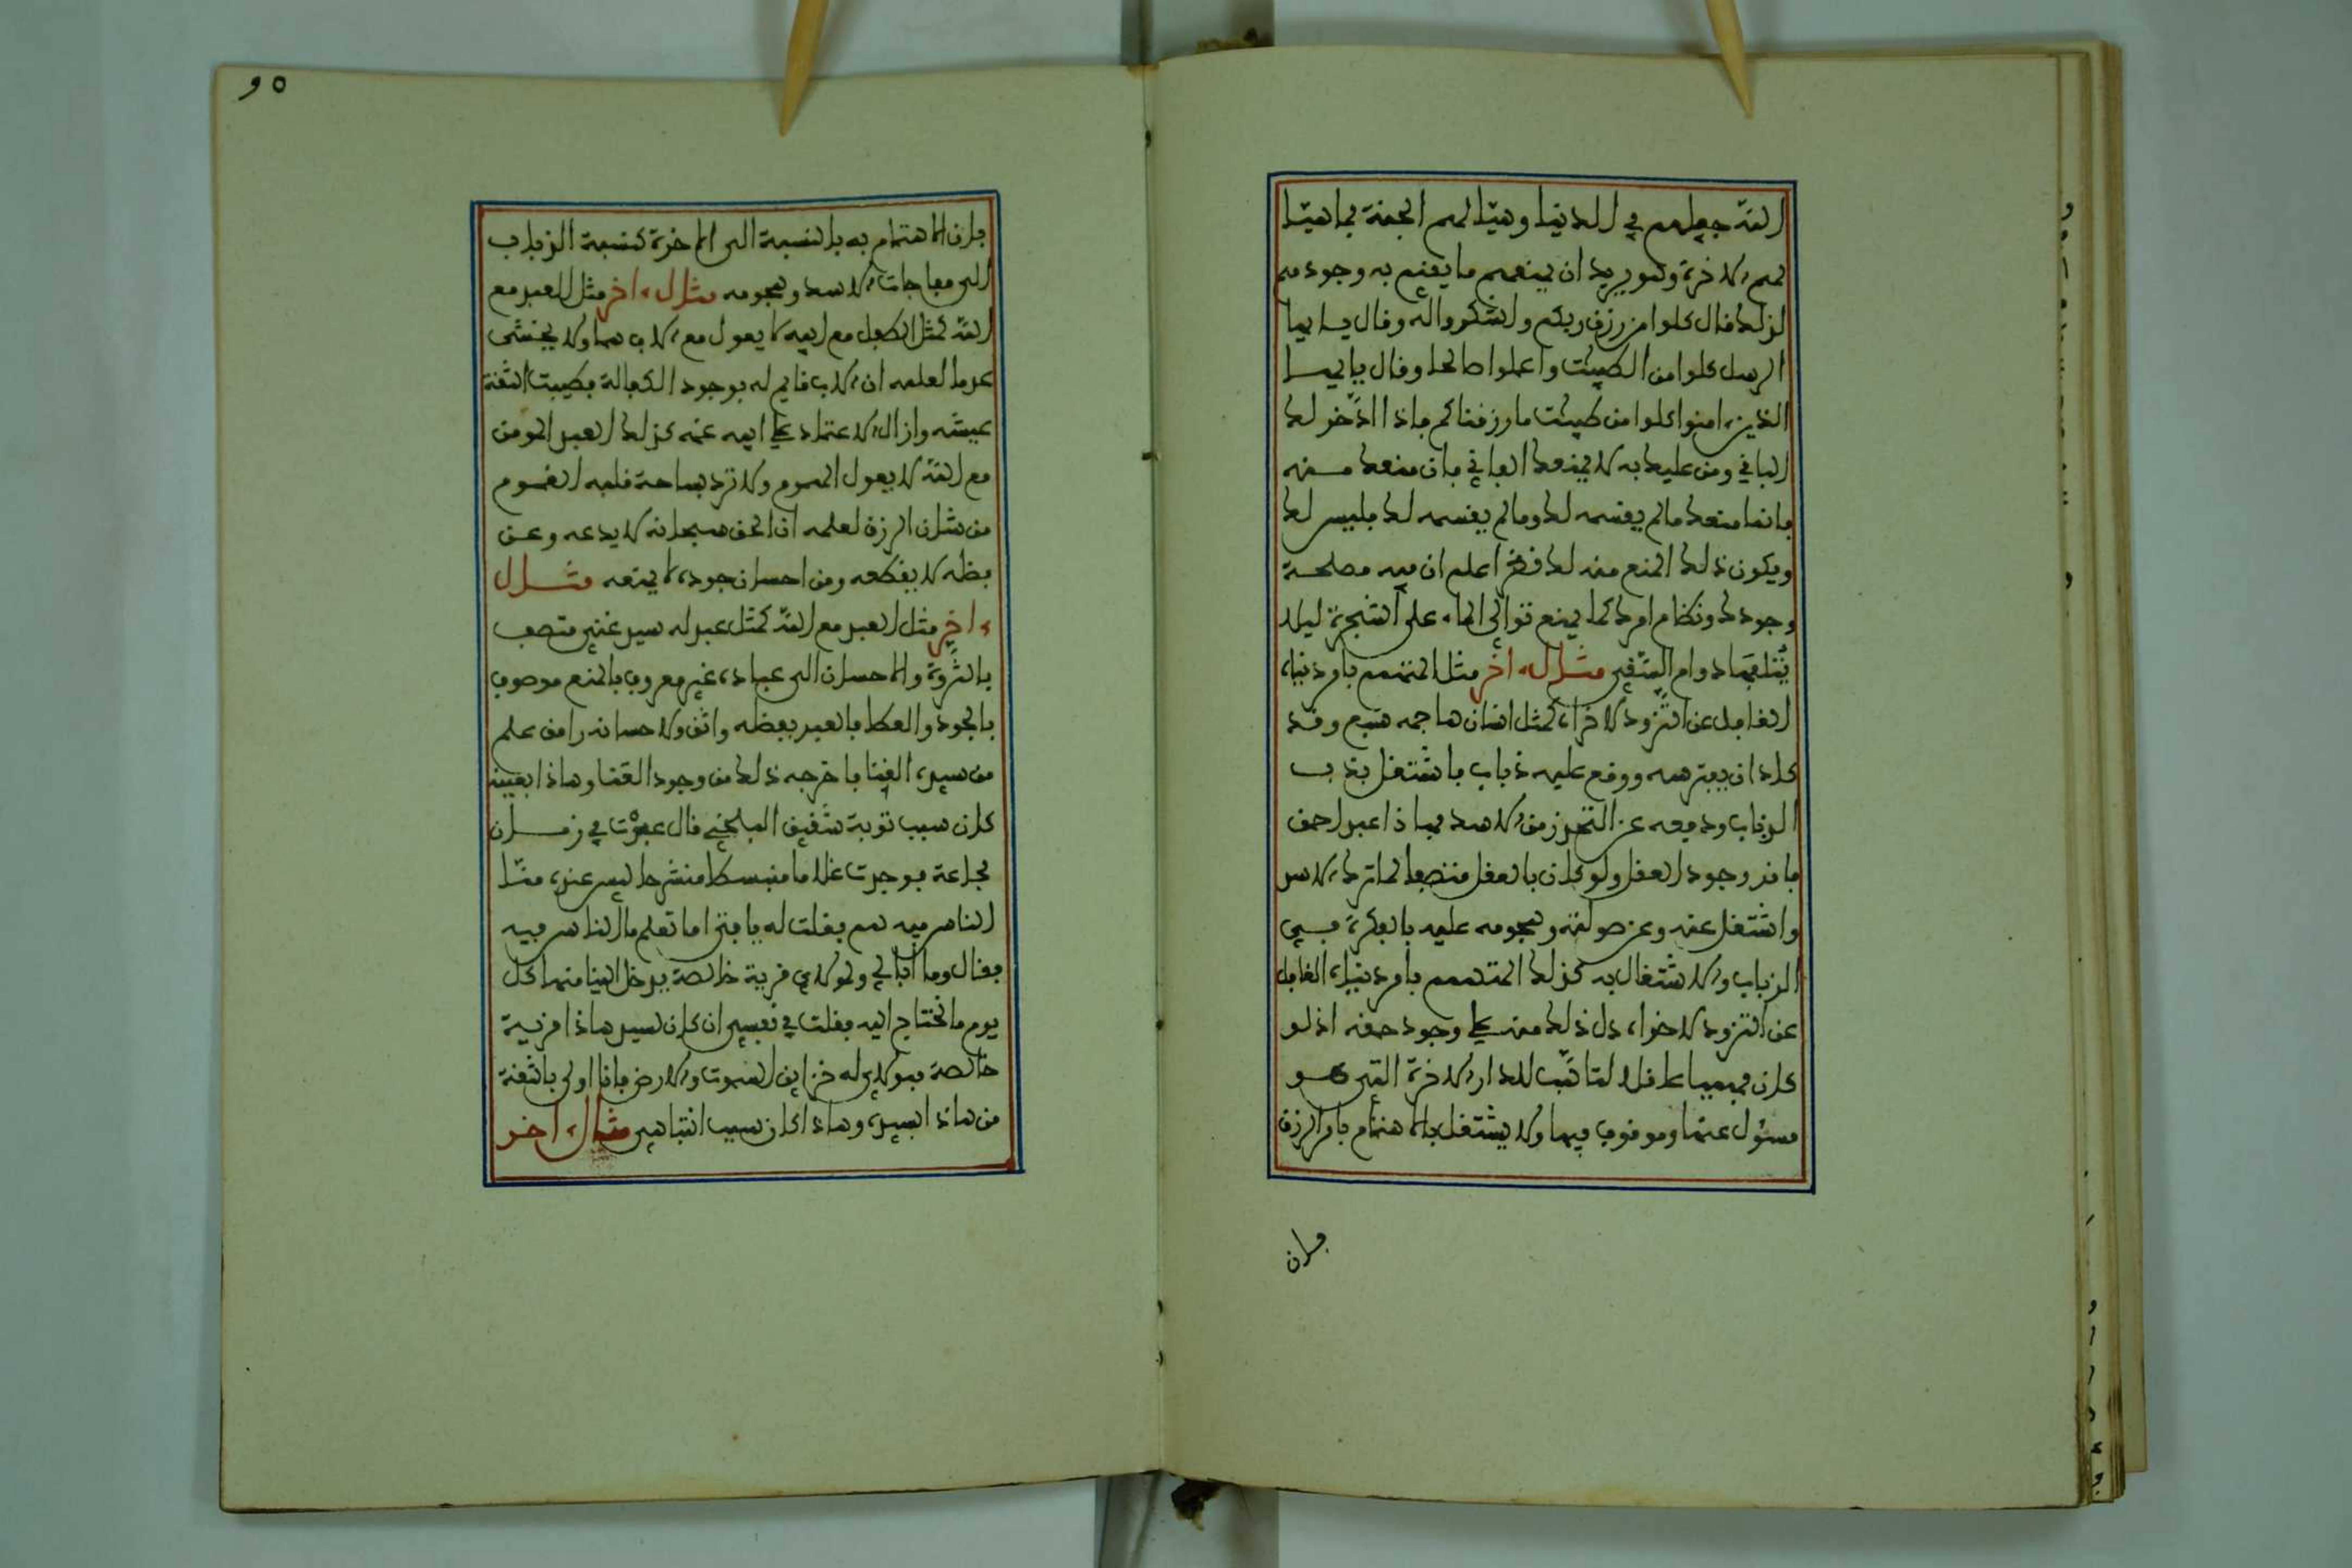 الله جعلهم في الدنيا وهيّا لهم الجنة بما هيّا
لهم الاخرة وهو يريد ان يمنعهم ما يقيم به وجودهم
لذلك قال كلوا من رزق ربكم واشكروا له وقال يا ايها
الرسل كلوا من الطيبت واعملوا صالحا وقال يا ايها
الذين ءامنوا كلوا من طيبت ما رزقناكم فاذا ادّخر لك
الباقي ومن عليك به لا يمنعك الفاني فان منعك منه
فانما منعك ما لم يقسمه لك وما لم يقسمه لك فليس لك
ويكون ذلك المنع منه لك نظرا علم ان فيه مصلحة
وجودك ونظام امرك كما يمنع توالي الماء على الشجرة ليلا
يُتلفها دوام السّقي مثال ءاخر مثل المهتمم بامر دنياه
الغافل عن التّزود لاخراه كمثل انسان هاجمه سبع وقد
كاد ان يفترسه ووقع عليه ذباب فاشتغل بذب
الذباب ودفعه عن التحرز من الاسد فهاذا عبد احمق
فاقد وجود العقل ولو كان بالعقل متصفا لما ترك الاسد
واشتغل عنه وعن صولته وهجومه عليه بالفكرة في
الذباب والاشتغال به كذلك المتهمم بامر دنياه الغافل
عن التزود لاخراه دل ذلك منه على وجود حمقه اذ لو
كان فهيما عاقلا لتاهّب للدار الاخرة التي هو
مسئول عنها وموقوف فيها ولا يشتغل بالاهتمام بامر الرزق
فان
٩٥
فان الاهتمام به بالنسبة الى الاخرة كنسبة الذباب
الى مفاجات الاسد وهجومه مثال ءاخر مثل العبد مع
الله كمثل الطفل مع ابيه لا يعول مع الاب هما ولا يخشى
عدما لعلمه ان الاب قايم له بوجود الكفالة فطيبت الثقة
عيشه وازال الاعتماد على ابيه غمه كذلك العبد المومن
مع الله لا يعول الهموم ولا ترد بساحة قلبه الغموم
من شان الرزق لعلمه ان الحق سبحانه لا يدعه وعن
فضله لا يقطعه ومن احسان جوده لا يمنعه مثال
ءاخر مثل العبد مع الله كمثل عبد له سيد غني متصف
بالثّروة والاحسان الى عباده غير معروف بالمنع موصوف
بالجود والعطا فالعبد بفضله واثق ولاحسانه رامق علم
من سيده الغنا فاخرجه ذلك من وجود العنا وهاذا بعينه
كان سبب توبة شقيق البلخي قال عبرت في زمان
مجاعة فوجدت غلاما منبسطا منشرحا ليس عنده مما
الناس فيه هم فقلت له يا فتى اما تعلم ما الناس فيه
فقال وما ابالي ولمولاي قرية خالصة يدخل الينا منها كل
يوم ما نحتاج اليه فقلت في نفسي ان كان لسيد هاذا قرية
خالصة فمولاي له خزاين السموت والارض فانا اولى بالثقة
من هاذا بسيده وهاذا كان سبب انتباهي مثال ءاخر